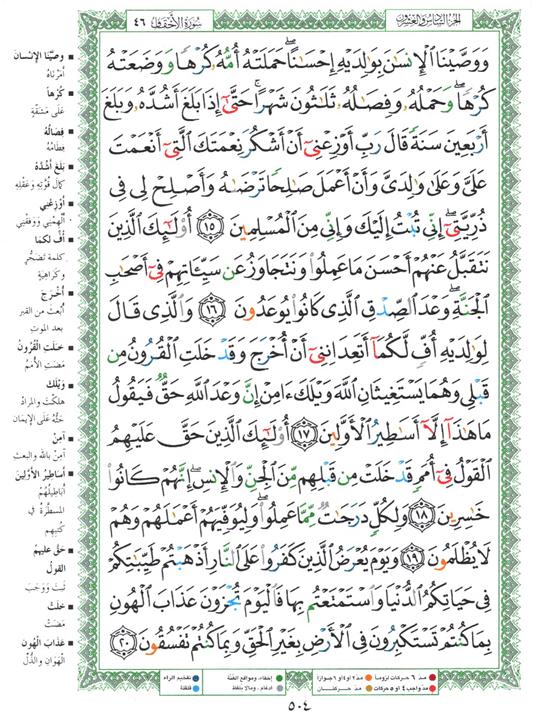 الجزء السادس والعشرون
سورة الأحقاف ٤٦
وَوَصَّيْنَا ٱلْإِنسَـٰنَ بِوَٰلِدَيْهِ إِحْسَـٰنًا ۖ حَمَلَتْهُ أُمُّهُۥ كُرْهًا وَوَضَعَتْهُ
كُرْهًا ۖ وَحَمْلُهُۥ وَفِصَـٰلُهُۥ ثَلَـٰثُونَ شَهْرًا ۚ حَتَّىٰٓ إِذَا بَلَغَ أَشُدَّهُۥ وَبَلَغَ
أَرْبَعِينَ سَنَةً قَالَ رَبِّ أَوْزِعْنِىٓ أَنْ أَشْكُرَ نِعْمَتَكَ ٱلَّتِىٓ أَنْعَمْتَ
عَلَىَّ وَعَلَىٰ وَٰلِدَىَّ وَأَنْ أَعْمَلَ صَـٰلِحًا تَرْضَىٰهُ وَأَصْلِحْ لِى فِى
ذُرِّيَّتِىٓ ۖ إِنِّى تُبْتُ إِلَيْكَ وَإِنِّى مِنَ ٱلْمُسْلِمِينَ ١٥ أُو۟لَـٰٓئِكَ ٱلَّذِينَ
نَتَقَبَّلُ عَنْهُمْ أَحْسَنَ مَا عَمِلُوا۟ وَنَتَجَاوَزُ عَن سَيِّـَٔاتِهِمْ فِىٓ أَصْحَـٰبِ
ٱلْجَنَّةِ ۖ وَعْدَ ٱلصِّدْقِ ٱلَّذِى كَانُوا۟ يُوعَدُونَ ١٦ وَٱلَّذِى قَالَ
لِوَٰلِدَيْهِ أُفٍّ لَّكُمَآ أَتَعِدَانِنِىٓ أَنْ أُخْرَجَ وَقَدْ خَلَتِ ٱلْقُرُونُ مِن
قَبْلِى وَهُمَا يَسْتَغِيثَانِ ٱللَّهَ وَيْلَكَ ءَامِنْ إِنَّ وَعْدَ ٱللَّهِ حَقٌّ فَيَقُولُ
مَا هَـٰذَآ إِلَّآ أَسَـٰطِيرُ ٱلْأَوَّلِينَ ١٧ أُو۟لَـٰٓئِكَ ٱلَّذِينَ حَقَّ عَلَيْهِمُ
ٱلْقَوْلُ فِىٓ أُمَمٍ قَدْ خَلَتْ مِن قَبْلِهِم مِّنَ ٱلْجِنِّ وَٱلْإِنسِ ۖ إِنَّهُمْ كَانُوا۟
خَـٰسِرِينَ ١٨ وَلِكُلٍّ دَرَجَـٰتٌ مِّمَّا عَمِلُوا۟ ۖ وَلِيُوَفِّيَهُمْ أَعْمَـٰلَهُمْ وَهُمْ
لَا يُظْلَمُونَ ١٩ وَيَوْمَ يُعْرَضُ ٱلَّذِينَ كَفَرُوا۟ عَلَى ٱلنَّارِ أَذْهَبْتُمْ طَيِّبَـٰتِكُمْ
فِى حَيَاتِكُمُ ٱلدُّنْيَا وَٱسْتَمْتَعْتُم بِهَا فَٱلْيَوْمَ تُجْزَوْنَ عَذَابَ ٱلْهُونِ
بِمَا كُنتُمْ تَسْتَكْبِرُونَ فِى ٱلْأَرْضِ بِغَيْرِ ٱلْحَقِّ وَبِمَا كُنتُمْ تَفْسُقُونَ ٢٠
وصّينا الإنسان
أمرناه
كُرْهاً
على مشقّة
فِصَالُهُ
فِطامُهُ
بلغ أشُدّه
كمال قوّته وعقله
أوْزِعْني
ألهِمْني ووفّقني
أفّ لكما
كلمة تضجّر
وكراهية
أُخْرَجَ
أُبعث من القبر
بعد الموت
خَلَتِ القُرُونُ
مضت الأمم
وَيْلَكَ
هلكت والمراد
حثّه على الإيمان
آمِنْ
آمن بالله والبعث
أساطير الأوّلين
أباطيلهم
المسطّرة في
كتبهم
حَقّ عليهم
القولُ
ثبت ووجب
خَلَتْ
مَضَتْ
عذاب الهون
الهوان والذّلّ
مد ٦ حركات لزوماً مد ٢ أو ٤ أو ٦ جوازاً إخفاء، ومواقع الغنّة تفخيم الراء
مد واجب ٤ أو ٥ حركات مد حركتان إدغام، وما لا يلفظ قلقلة
٥٠٤